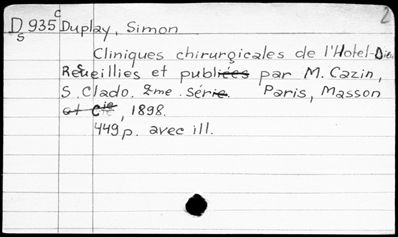 2
D 935 c Duplay, Simon
s
Cliniques chirurgicales de l'Hotel-Dieu
Recueillies et publiées par M. Cazin,
S. Clado. 2me. Série. Paris, Masson
et Cie, 1898.
449 p. avec ill.